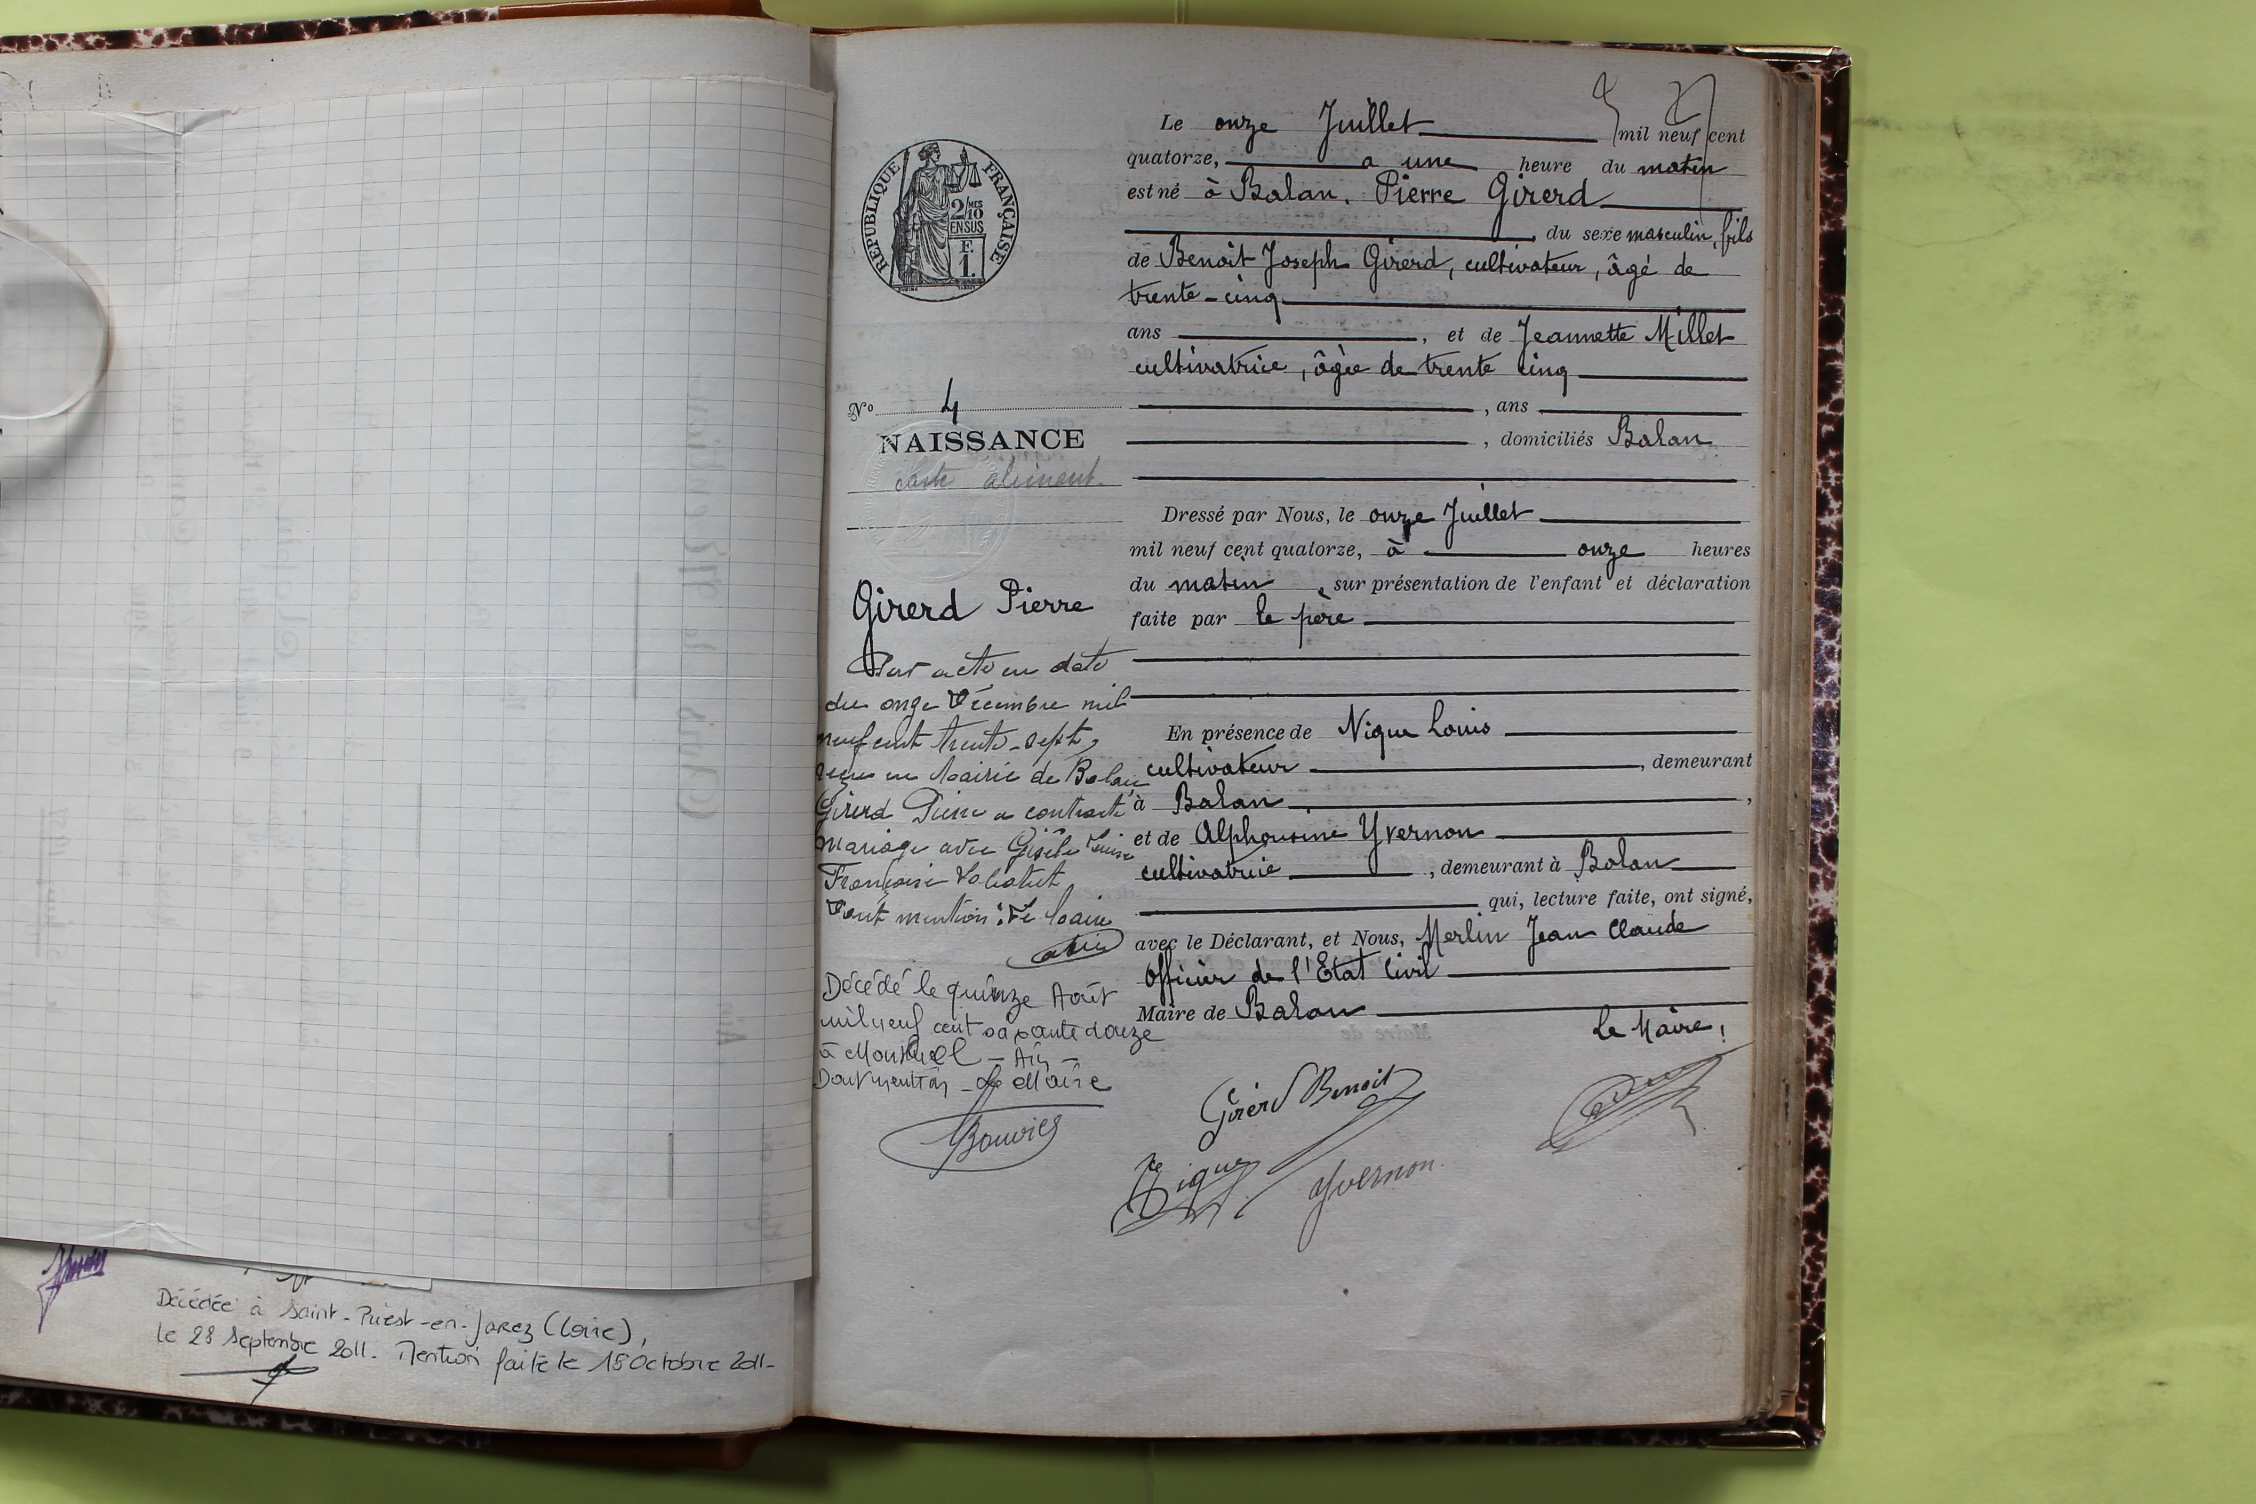 Décédée à Saint-Priest-en-Jarez (Loire),
le 28 Septembre 2011. Mention faite le 15 Octobre 2011-
RÉPUBLIQUE FRANÇAISE
2/10 MES
EN SUS
F.
1.
Nº 4
NAISSANCE
carte aliment.
Girerd Pierre
Par acte en date
du onze Décembre mil
neuf cent trente-sept,
reçu en Mairie de Balan
Girerd Pierre a contracté
mariage avec Gisèle Louise
Françoise
Dont mention : Le Maire
Décédé le quinze Août
mil neuf cent soixante douze
à Montluel - Ain -
Dont mention - Le Maire
Bouvier
Le onze Juillet mil neuf cent
quatorze, a une heure du matin
est né à Balan, Pierre Girerd
, du sexe masculin, fils
de Benoît Joseph Girerd, cultivateur, âgé de
trente-cinq
ans , et de Jeannette Millet
cultivatrice, âgée de trente cinq
, ans
, domiciliés Balan
Dressé par Nous, le onze Juillet
mil neuf cent quatorze, à onze heures
du matin , sur présentation de l'enfant et déclaration
faite par le père
En présence de Nique Louis
cultivateur , demeurant
à Balan ,
et de Alphonsine Yvernon
cultivatrice , demeurant à Balan
qui, lecture faite, ont signé,
avec le Déclarant, et Nous, Merlin Jean Claude
Officier de l'Etat Civil
Maire de Balan
Le Maire,
Girerd Benoit
Nique
Yvernon